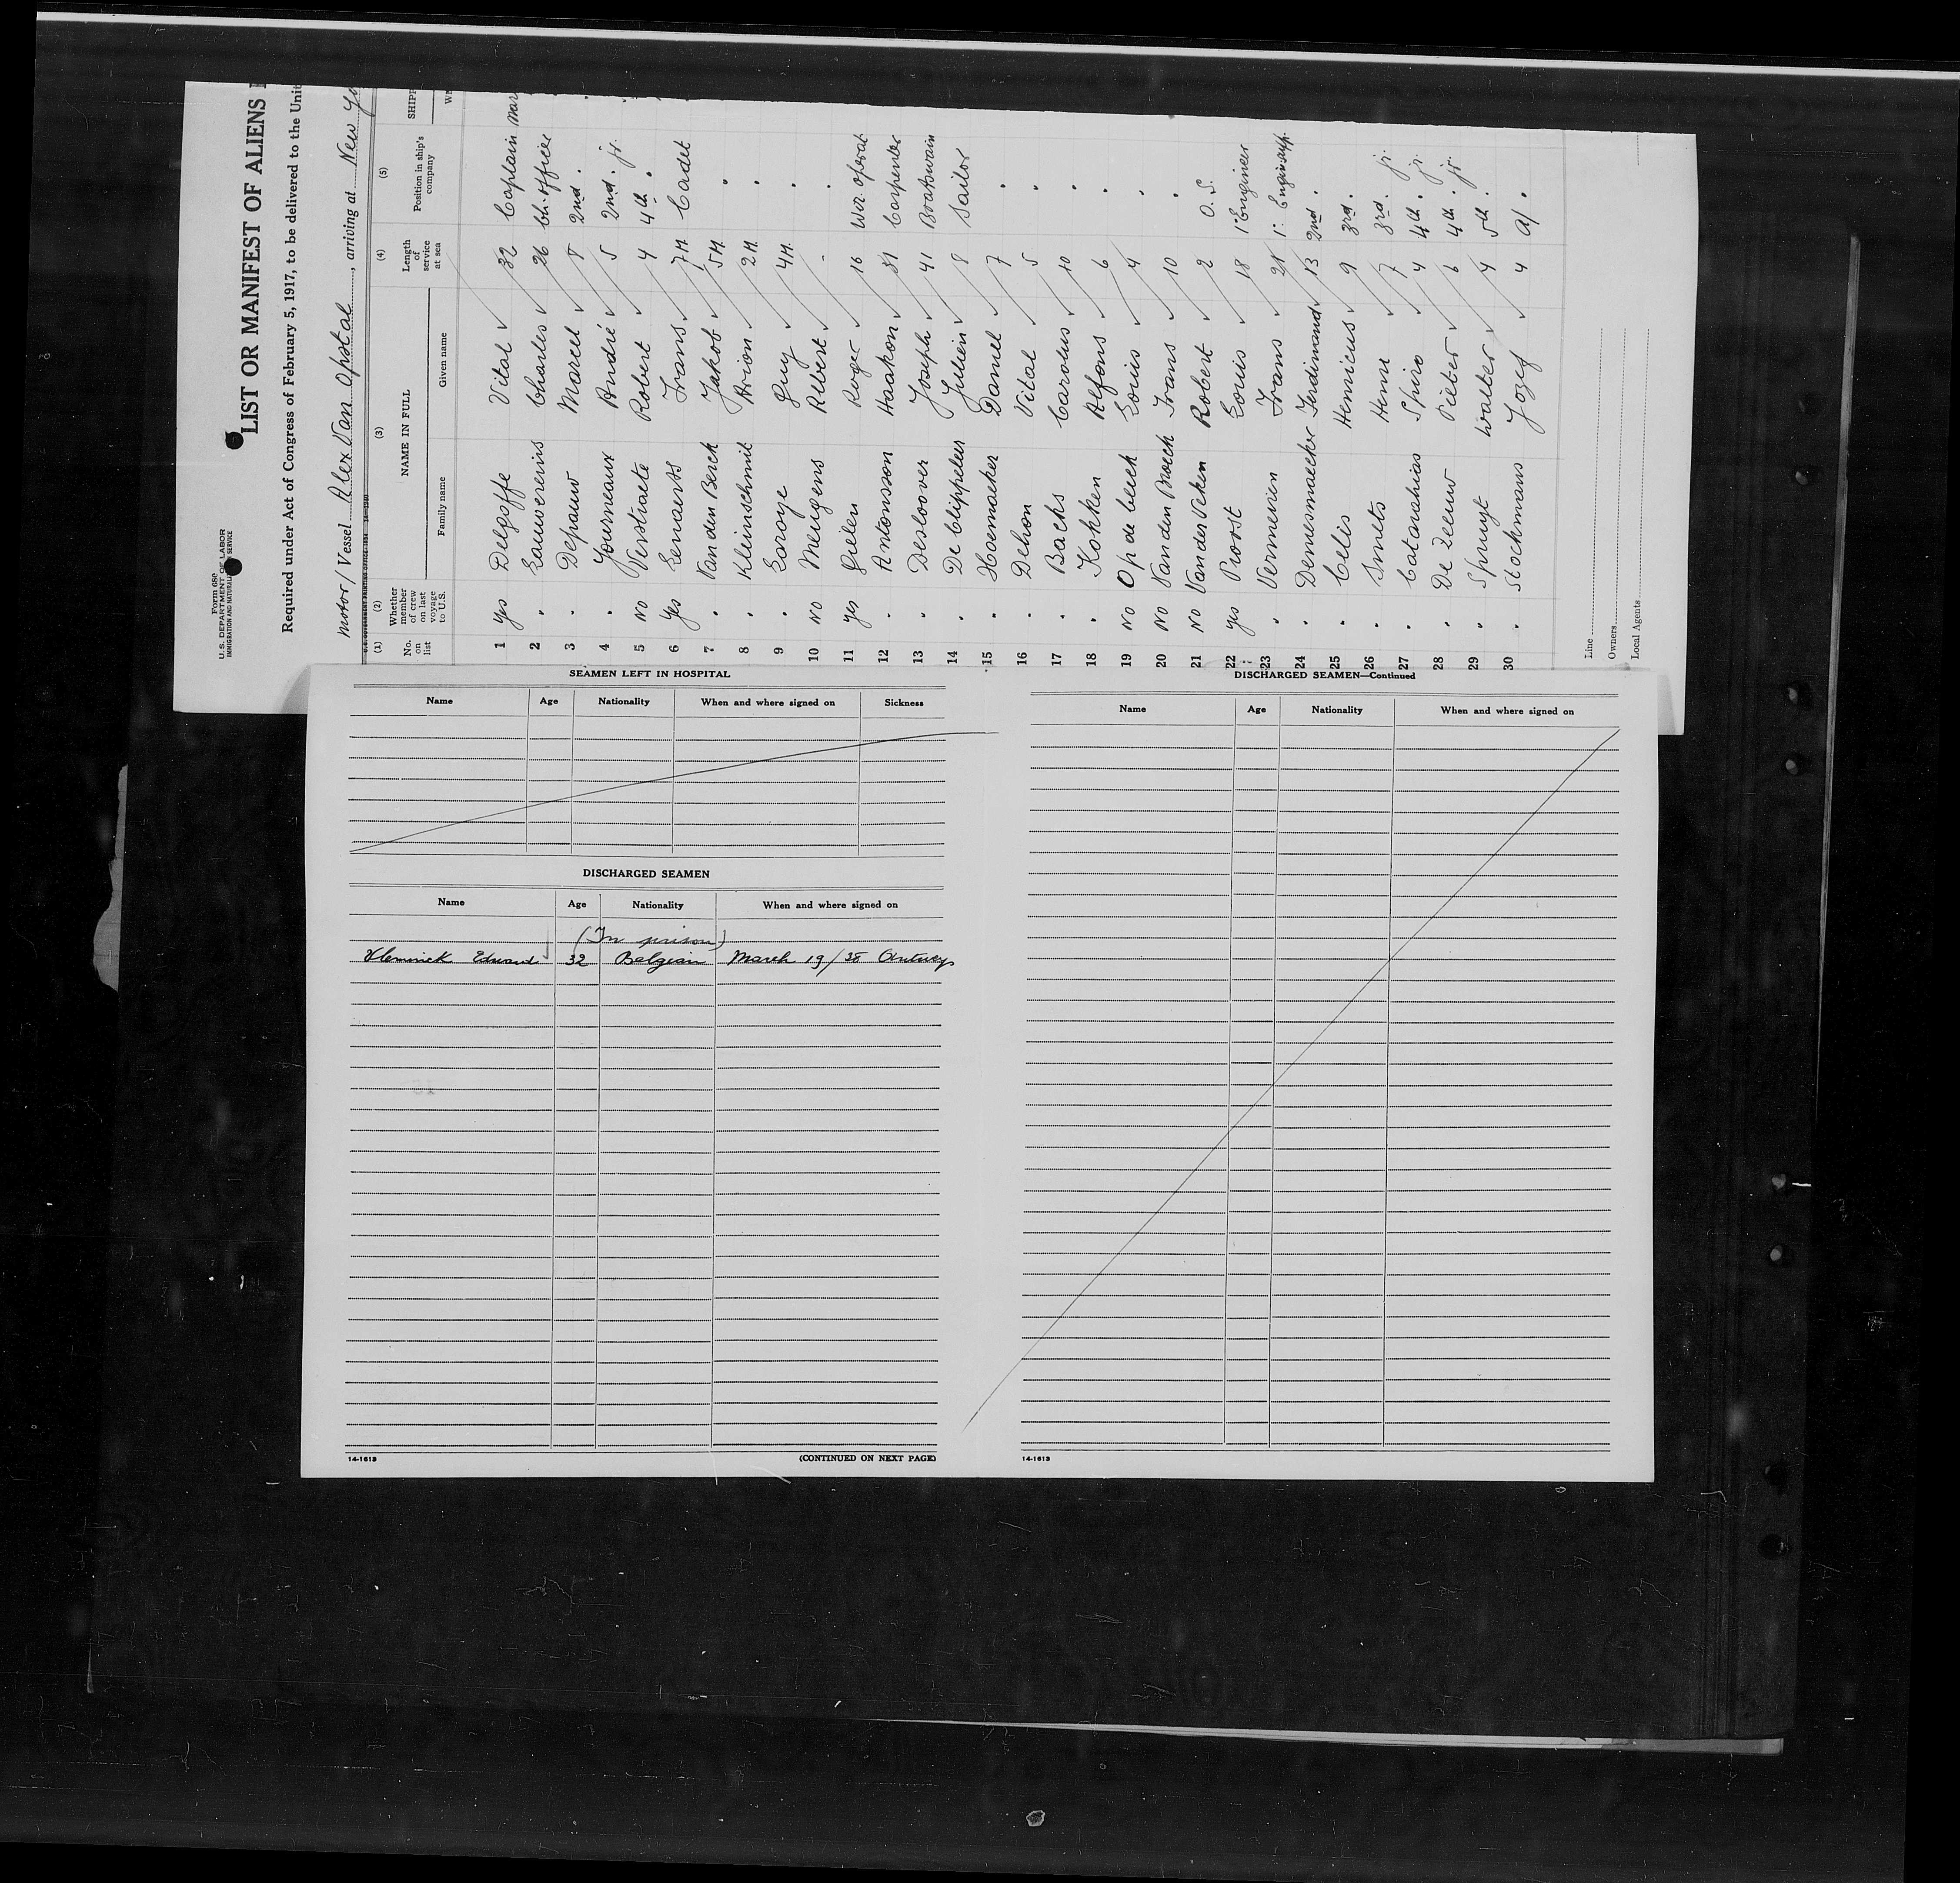 Form 680
U. S. DEPARTMENT OF LABOR
IMMIGRATION AND NATURALIZATION SERVICE
LIST OR MANIFEST OF ALIENS
Required under Act of Congress of February 5, 1917, to be delivered to the Unit
Motor/Vessel Alex Van Opstal, arriving at New Yo
(1) (2) (3) (4) (5)
No. on list Whether member of crew on last voyage to U.S. NAME IN FULL Family name Given name Length of service at sea Position in ship's company SHIPP
1 Yes Delgoffe Vital 32 Captain
2 " Lauwereins Charles 26 Ch. officer
3 " Depauw Marcel 8 2nd "
4 " Yourneaux André 5 2nd " jr.
5 No Verstraete Robert 4 4th "
6 Yes Lenaerts Frans 7M Cadet
7 " Van den Berck Jakob 5M "
8 " Kleinschmit Arion 2M "
9 " Laroye Guy 4M "
10 No Meugens Albert - "
11 Yes Gielen Roger 16 Wir. operat
12 " Antonsson Haakon 31 Carpenter
13 " Desloover Joseph 41 Boatswain
14 " De Clippeleer Julien 8 Sailor
15 " Haemaeker Daniel 7 "
16 " Dehon Vital 5 "
17 " Backs Carolus 10 "
18 " Kokken Alfons 6 "
19 No Op de beeck Louis 4 "
20 No Van den Broeck Frans 10 "
21 No Van der Veken Robert 2 O. S.
22 Yes Provost Louis 18 1° Engineer
23 " Vermeiren Frans 21
24 " Demesmaecker Ferdinand 13 2nd "
25 " Celis Henricus 9 3rd "
26 " Smets Henri 7 3rd " jr.
27 " Catarahias Shiro 4 4th " jr.
28 " De Zeeuw Pieter 6 4th " jr.
29 " Spruyt Walter 4 5th "
30 " Stockmans Jozef 4 a/ "
Line
Owners
Local Agents
SEAMEN LEFT IN HOSPITAL
Name Age Nationality When and where signed on Sickness
DISCHARGED SEAMEN
Name Age Nationality When and where signed on
(In prison)
Vleminck Edward 32 Belgian March 19/38 Antwerp
14-1613
(CONTINUED ON NEXT PAGE)
DISCHARGED SEAMEN—Continued
Name Age Nationality When and where signed on
14-1613